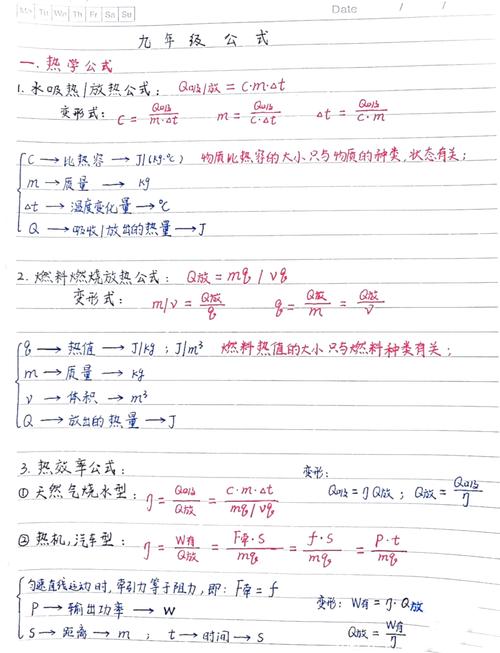 Mo Tu We Th Fr Sa Su
Date / /
九年级公式
一.热学公式
1. 水吸热/放热公式: Q吸/放 = C·m·Δt
变形式: C = Q吸/m·Δt m = Q吸/C·Δt Δt = Q吸/C·m
C → 比热容 → J/(kg·℃) 物质比热容的大小只与物质的种类,状态有关;
m → 质量 → kg
Δt → 温度变化量 → ℃
Q → 吸收/放出的热量 → J
2. 燃料燃烧放热公式: Q放 = mq / vq
变形式: m/v = Q放/q q = Q放/m = Q放/v
q → 热值 → J/kg ; J/m³ 燃料热值的大小只与燃料种类有关;
m → 质量 → kg
v → 体积 → m³
Q → 放出的热量 → J
3. 热效率公式:
① 天然气烧水型: η = Q吸/Q放 = C·m·Δt/mq/vq
变形: Q吸 = ηQ放 ; Q放 = Q吸/η
② 热机,汽车型: η = W有/Q放 = F牵·S/mq = f·S/mq = P·t/mq
匀速直线运动时,牵引力等于阻力,即: F牵 = f
P → 输出功率 → W
S → 距离 → m ; t → 时间 → S
变形: W有 = η·Q放
Q放 = W有/η